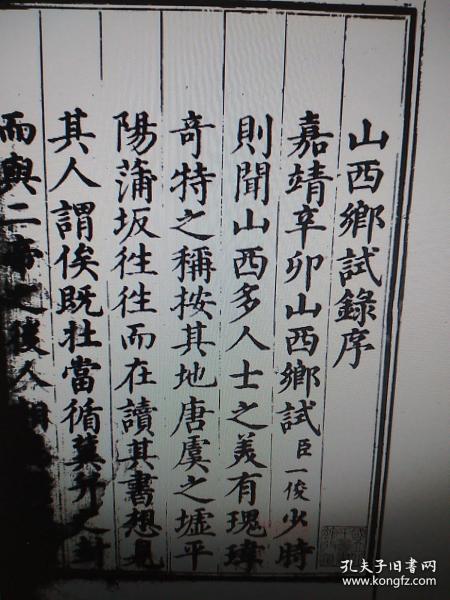 山西鄉試錄序
嘉靖辛卯山西鄉試臣一俊少時
則聞山西多人士之美有瑰瑋
奇特之稱按其地唐虞之墟平
陽蒲坂徃徃而在讀其書想見
其人謂俟既壯當循冀
而與二帝之後人
孔夫子旧书网
www.kongfz.com